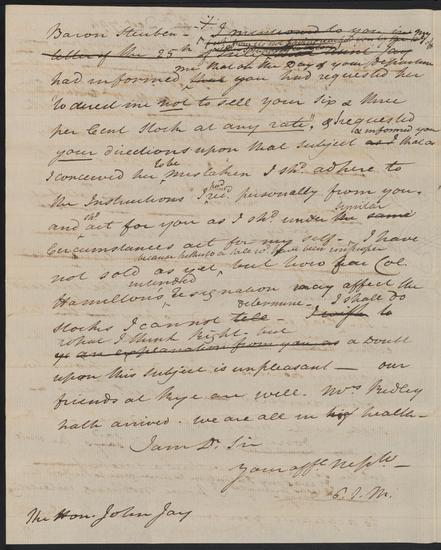 Baron Steuben — I mentioned to you in my
letter of the 25th Aunt Jay
me that on the Day of your Departure
had informed you had requested her
to direct me not to sell your six & three
per Cent Stock at any rate", & I requested
& informed you
your directions upon that subject as I that as
I conceived her to be mistaken I shd. adhere to
the Instructions I had recd. personally from you.
and shd. act for you as I shd. under the same similar
Circumstances act for my self — I have
because hitherto a sale wd. have been improper
not sold as yet, but how far Col.
Hamiltons intended resignation may affect the
stocks I cannot tell determine — I shall do I wish to
what I think right — but
an explanation from you as a Doubt
upon this subject is unpleasant — our
friends at Rye are well. Mrs. Ridley
hath arrived. we are all in health —
I am Dr. Sir
your afft. Nephw.
P. J. M.
The Hon. John Jay